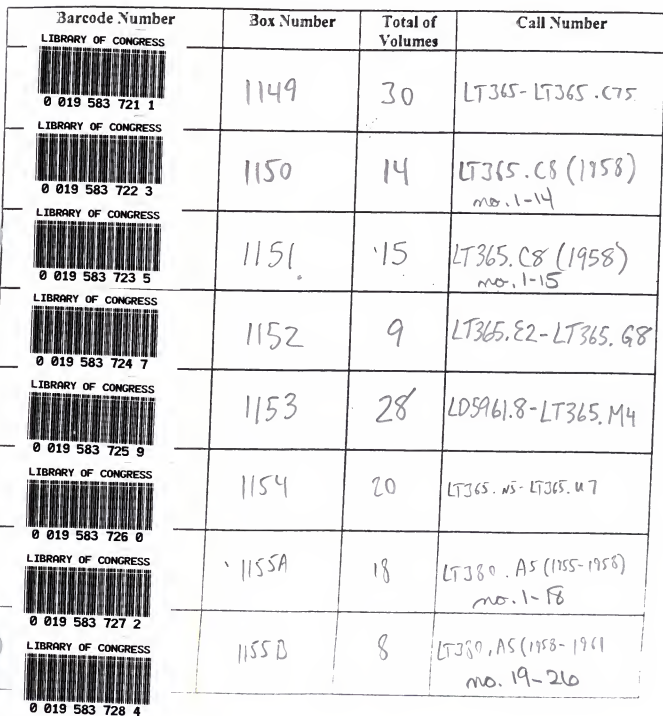 Barcode Number Box Number Total of Volumes Call Number
LIBRARY OF CONGRESS
0 019 583 721 1 1149 30 LT365-LT365.C75
LIBRARY OF CONGRESS
0 019 583 722 3 1150 14 LT365.C8 (1958)
no. 1-14
LIBRARY OF CONGRESS
0 019 583 723 5 1151 15 LT365.C8 (1958)
no. 1-15
LIBRARY OF CONGRESS
0 019 583 724 7 1152 9 LT365.E2-LT365.G8
LIBRARY OF CONGRESS
0 019 583 725 9 1153 28 LD5961.8-LT365.M4
LIBRARY OF CONGRESS
0 019 583 726 0 1154 20 LT365.N5-LT365.U7
LIBRARY OF CONGRESS
0 019 583 727 2 1155A 18 LT380.A5 (1955-1958)
no. 1-18
LIBRARY OF CONGRESS
0 019 583 728 4 1155B 8 LT380.A5 (1958-1961
no. 19-26